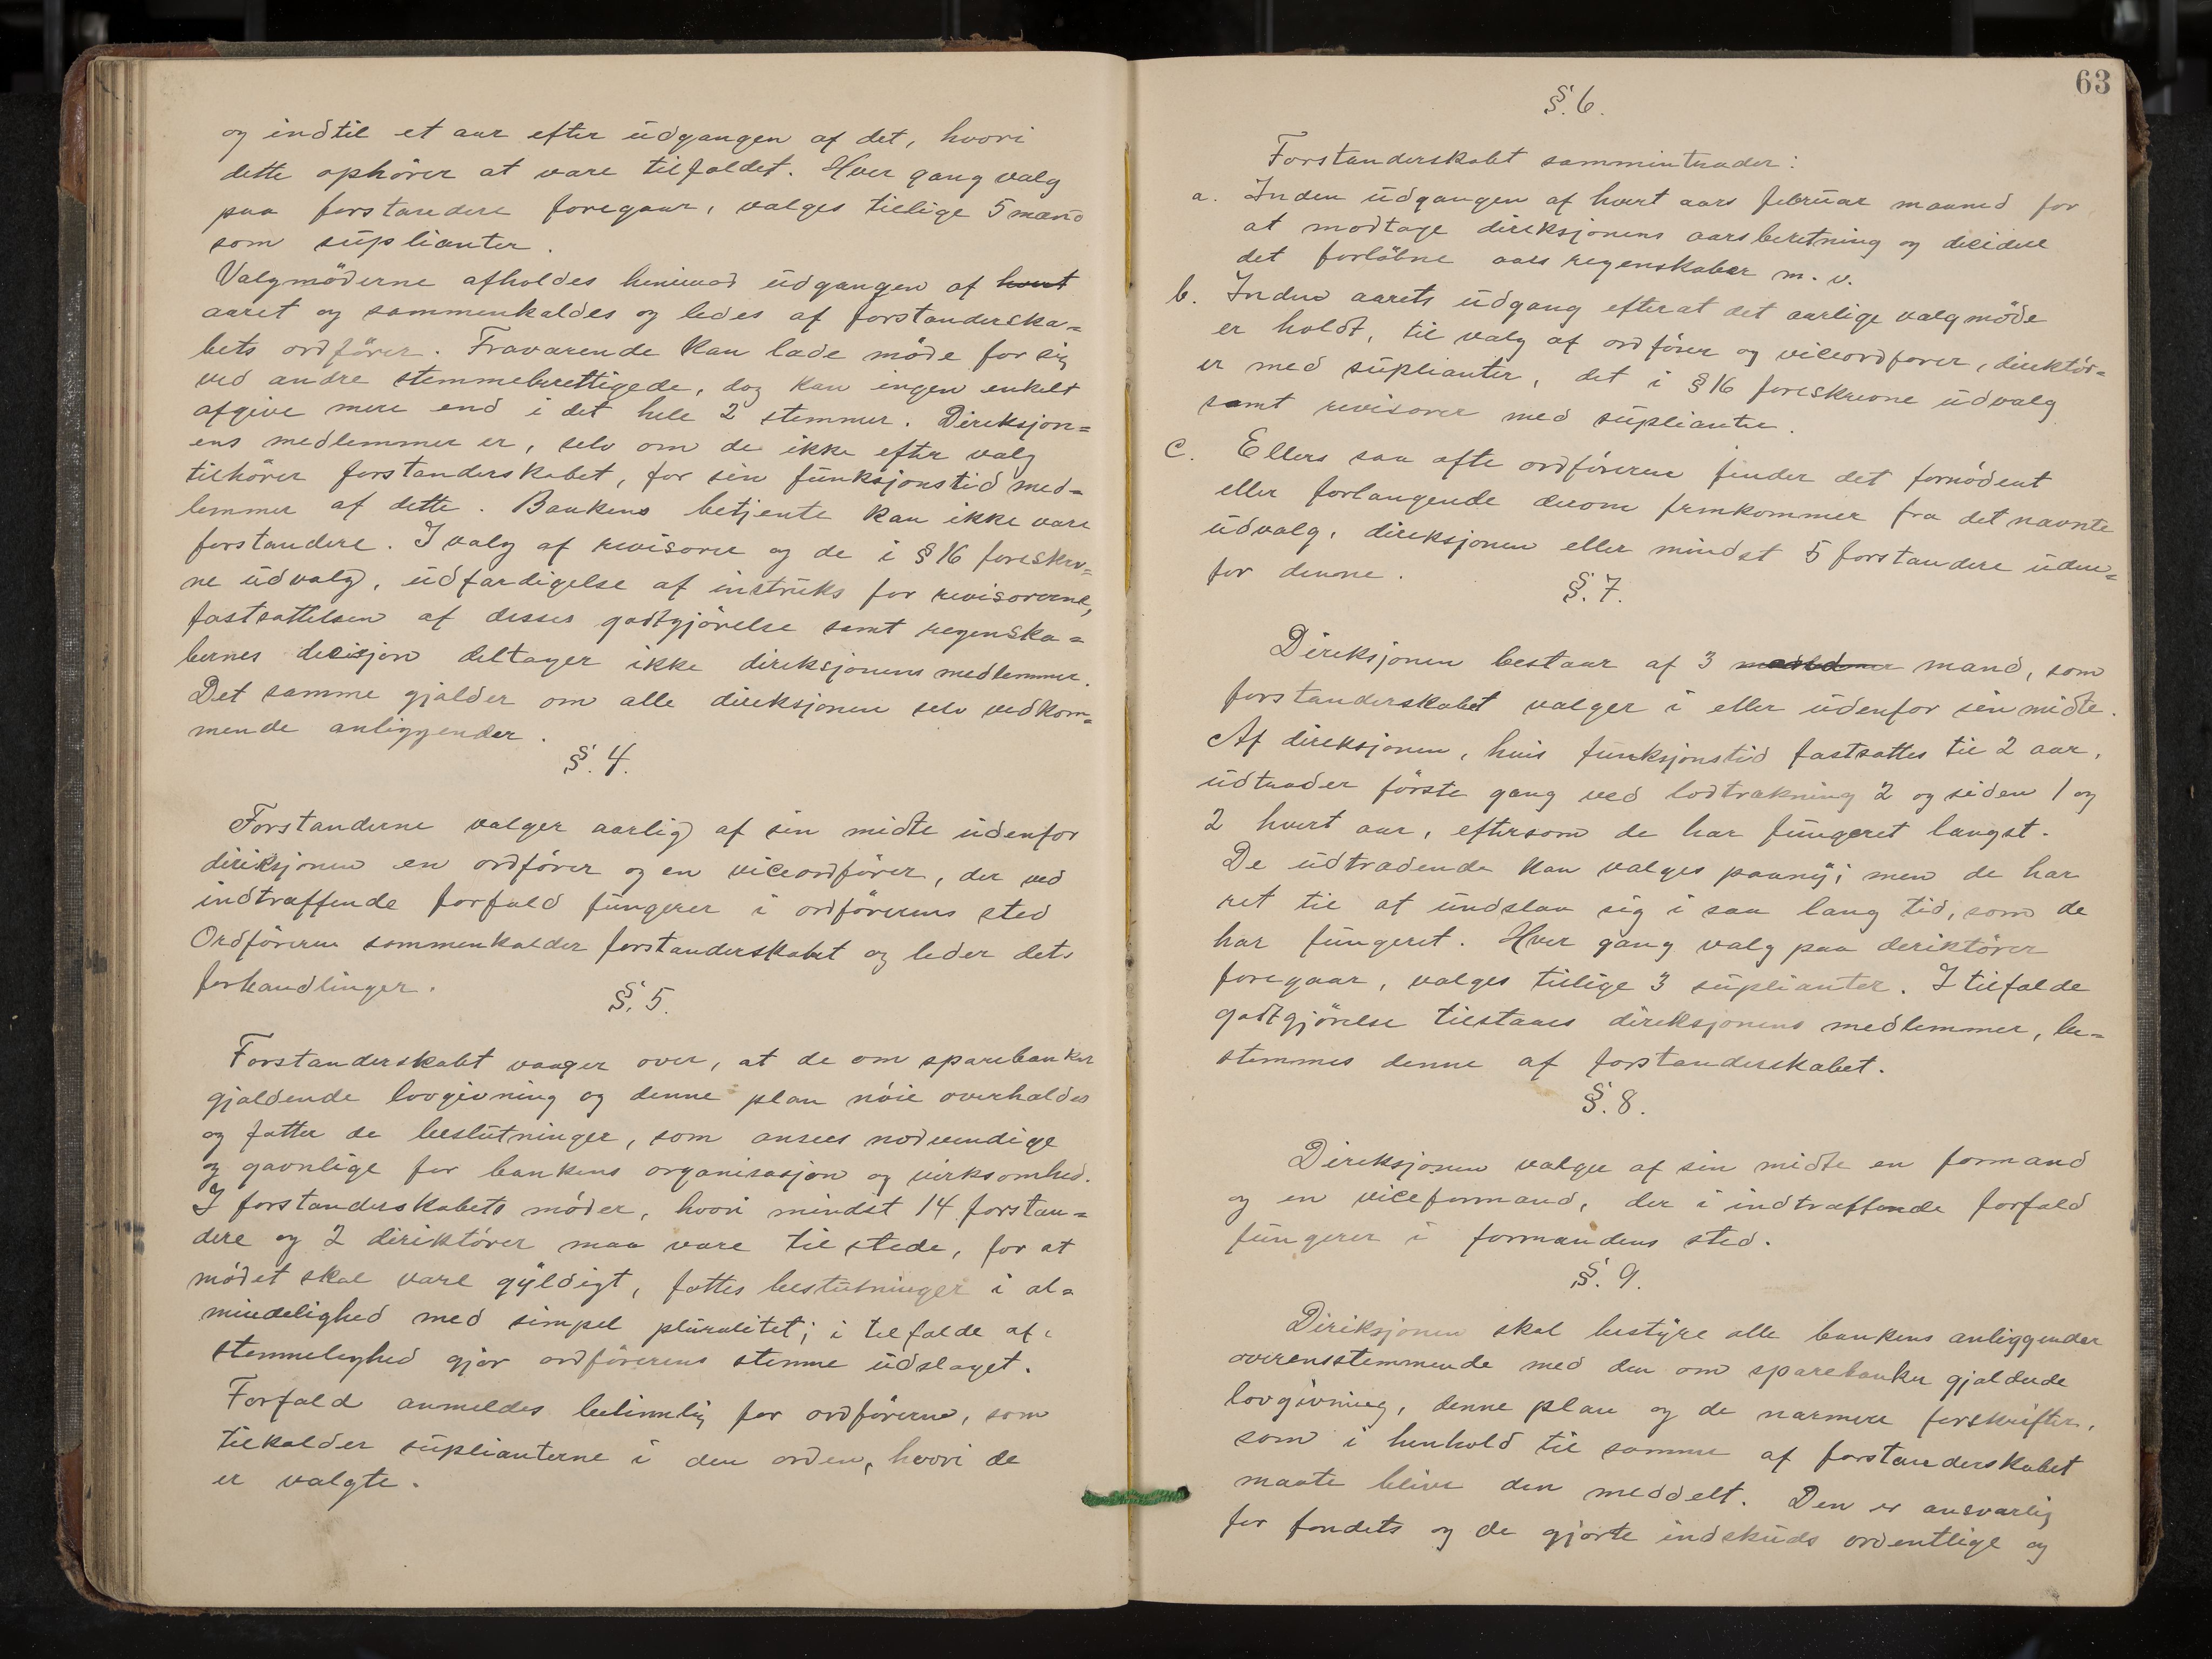 og indtil et aar efter udgangen af det, hvori
dette ophörer at være tilfældet. Hver gang valg
paa forstandere foregaar, vælges tillige 5 mænd
som suplianter.
Valgmöderne afholdes henimod udgangen af hvert
aaret og sammenkaldes og ledes af forstanderska=
bets ordförer. Fraværende kan lade möde for sig
ved andre stemmeberettigede, dog kan ingen enkelt
afgive mere end i det hele 2 stemmer. Direksjon=
ens medlemmer er, selv om de ikke efter valg
tilhörer forstanderskabet, for sin funksjonstid med=
lemmer af dette. Bankens betjente kan ikke være
forstandere. I valg af revisorer og de i § 16 foreskrev=
ne udvalg, udfærdigelse af instruks for revisorerne,
fastsættelsen af disses godtgjörelse samt regenska=
bernes decisjon deltager ikke direksjonens medlemmer.
Det samme gjælder om alle direksjonen selv vedkom=
mende anliggender.
§. 4.
Forstanderne vælger aarlig af sin midte udenfor
direksjonen en ordförer og en viceordförer, der ved
indtræffende forfald fungerer i ordförerens sted
Ordföreren sammenkalder forstanderskabet og leder dets
forhandlinger.
§. 5.
Forstanderskabet vaager over, at de om sparebanker
gjældende lovgivning og denne plan nöie overholdes
og fatter de beslutninger, som ansees nodvendige
og gavnlige for bankens organisasjon og virksomhed.
I forstanderskabets möder, hvori mindst 14 forstan=
dere og 2 direktörer maa være tilstede, for at
mödet skal være gyldigt, fattes beslutninger i al=
mindelighed med simpel pluralitet; i tilfælde af
stemmelighed gjör ordförerens stemme udslaget.
Forfald anmeldes betimelig for ordföreren, som
tilkalder suplianterne i den orden, hvori de
er valgte.
63
§. 6.
Forstanderskabet sammentræder:
a. Inden udgangen af hvert aars februar maaned for
at modtage direksjonens aarsberetning og decidere
det forlöbne aars regenskaber m. v.
b. Inden aarets udgang efterat det aarlige valgmöde
er holdt, til valg af ordförer og viceordforer, direktör=
er med suplianter, det i § 16 foreskrevne udvalg
samt revisorer med suplianter.
c. Ellers saa ofte ordföreren finder det fornödent
eller forlangende derom fremkommer fra det nævnte
udvalg, direksjonen eller mindst 5 forstandere uden=
for denne.
§. 7.
Direksjonen bestaar af 3 mand, som
forstanderskabet vælger i eller udenfor sin midte.
Af direksjonen, hvis funksjonstid fastsættes til 2 aar,
udtræder förste gang ved lodtrækning 2 og siden 1 og
2 hvert aar, eftersom de har fungeret længst.
De udtrædende kan vælges paany; men de har
ret til at undslaa sig i saa lang tid, som de
har fungeret. Hver gang valg paa deriktörer
foregaar, vælges tillige 3 suplianter. I tilfælde
godtgjörelse tilstaaes direksjonens medlemmer, be=
stemmes denne af forstanderskabet.
§. 8.
Direksjonen vælger af sin midte en formand
og en viceformand, der i indtræffende forfald
fungerer i formandens sted.
§. 9.
Direksjonen skal bestyre alle bankens anliggender
overensstemmende med den om sparebanker gjældende
lovgivning, denne plan og de nærmere forskrifter,
som i henhold til samme af forstanderskabet
maate blive den meddelt. Den er ansvarlig
for fondets og de gjorte indskuds ordentlige og